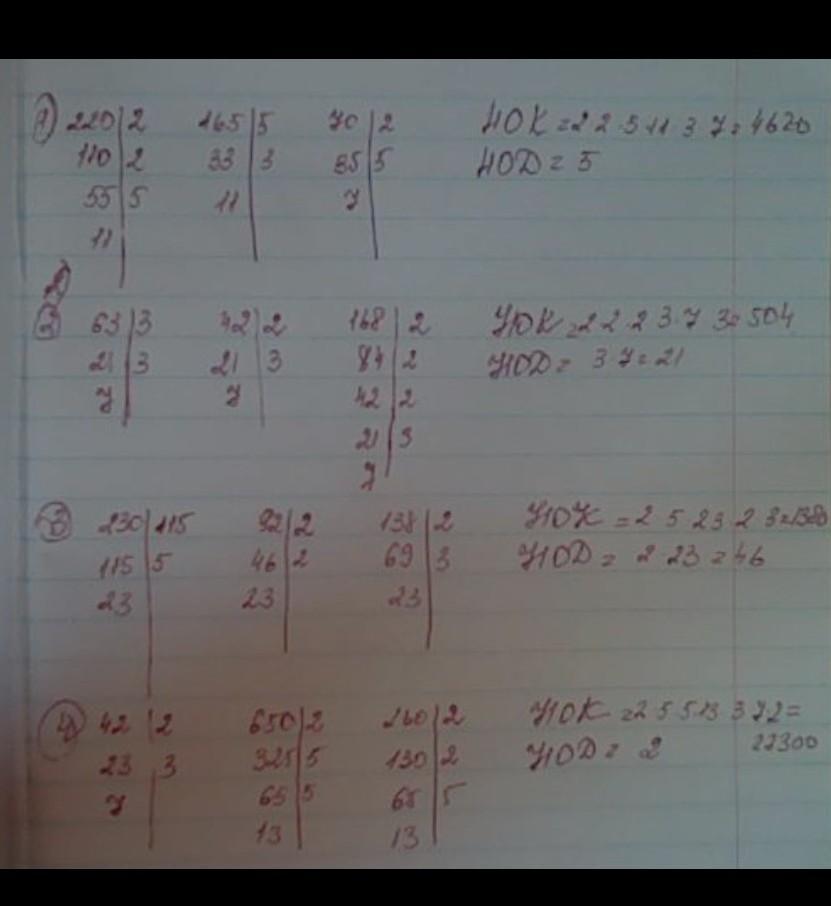 1) 220|2 165|5 70|2 НОК = 2 2 5 11 3 7 = 4620
110|2 33|3 35|5 НОД = 5
55|5 11 7
11
2 63|3 42|2 168|2 НОК = 2 2 2 3 7 3 = 504
21|3 21|3 84|2 НОД = 3 7 = 21
7 7 42|2
21|3
7
3 230|115 92|2 138|2 НОК = 2 5 23 2 3 = 1380
115|5 46|2 69|3 НОД = 2 23 = 46
23 23 23
4 42|2 650|2 260|2 НОК = 2 5 5 13 3 7 2 =
23 3 325|5 130|2 НОД = 2 27300
7 65|5 65|5
13 13